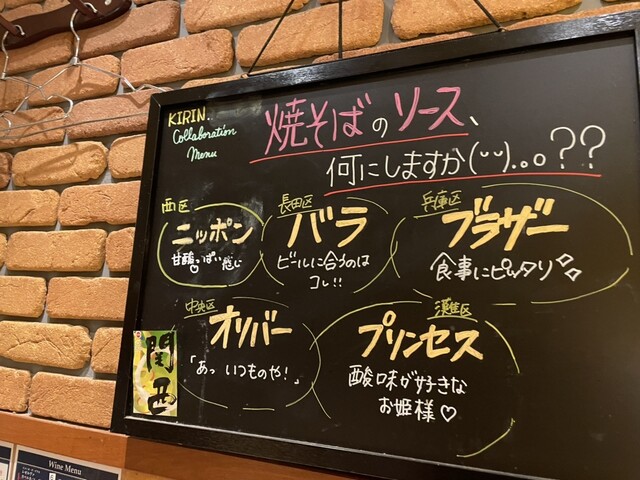 KIRIN
Collaboration
Menu
焼そばのソース、
何にしますか(ᵕᵕ)..o??
西区
ニッポン
甘酸っぱい感じ
長田区
バラ
ビールに合うのは
コレ!!
兵庫区
ブラザー
食事にピッタリ
中央区
オリバー
「あっ いつものや!」
灘区
プリンセス
酸味が好きな
お姫様♡
関西
Wine Menu